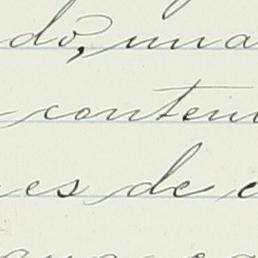 do, una
conten
es de c